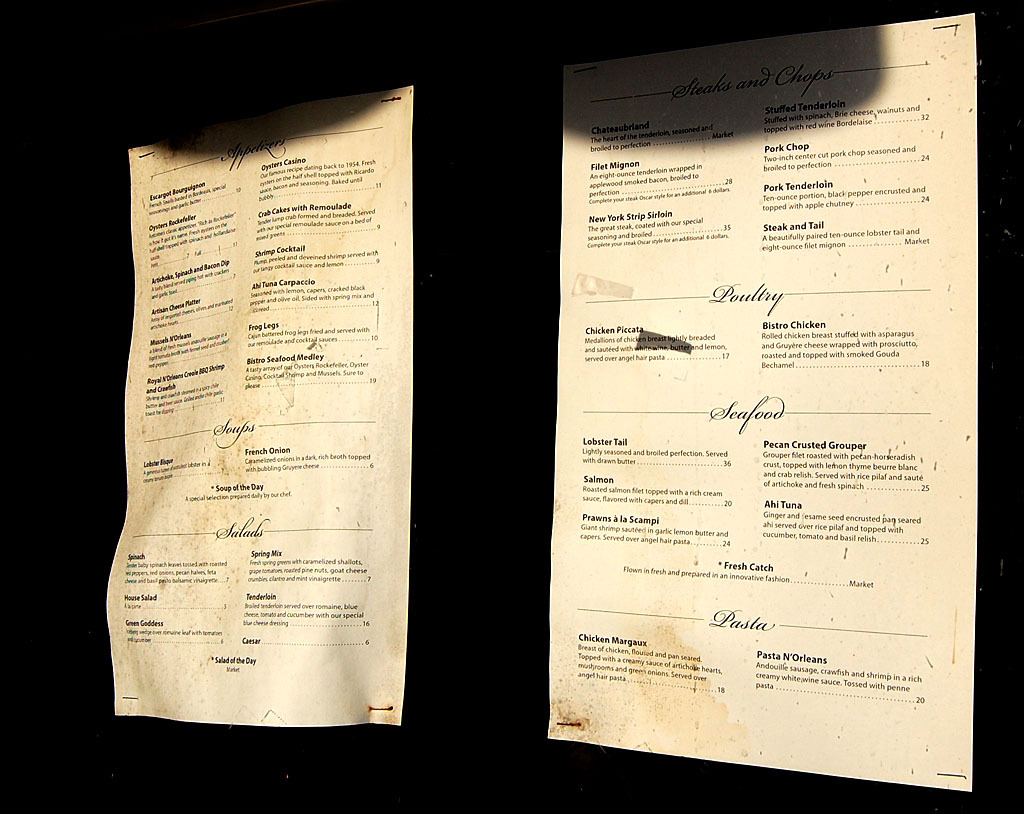 Appetizers
Escargot Bourguignon
French Snails basted in Bordeaux, special
seasonings and garlic butter 10
Oysters Rockefeller
classic appetizer. "Rich as Rockefeller"
is how it got its name. Fresh oysters on the
half shell topped with spinach and hollandaise
sauce.
Half 7 Full 11
Artichoke, Spinach and Bacon Dip
A tasty blend served piping hot with crackers
and garlic toast 7
Artisan Cheese Platter
Array of imported cheeses, olives and marinated
artichoke hearts 12
Mussels N'Orleans
red peppers
Royal N'Orleans Creole BBQ Shrimp
and Crawfish
Shrimp and crawfish steamed in a spicy chile
butter and beer sauce. Grilled garlic
toast for dipping 11
Oysters Casino
Our famous recipe dating back to 1954. Fresh
oysters on the half shell topped with Ricardo
sauce, bacon and seasoning. Baked until
bubbly 11
Crab Cakes with Remoulade
Tender lump crab formed and breaded. Served
with our special remoulade sauce on a bed of
mixed greens 9
Shrimp Cocktail
Plump, peeled and deveined shrimp served with
our tangy cocktail sauce and lemon 9
Ahi Tuna Carpaccio
Seasoned with lemon, capers, cracked black
pepper and olive oil. Sided with spring mix and
bread 12
Frog Legs
Cajun battered frog legs fried and served with
our remoulade and cocktail sauces 10
Bistro Seafood Medley
A tasty array of our Oysters Rockefeller, Oyster
Casino, Cocktail Shrimp and Mussels. Sure to
please 19
Soups
Lobster Bisque
creamy tomato broth
French Onion
Caramelized onions in a dark, rich broth topped
with bubbling Gruyere cheese 6
* Soup of the Day
A special selection prepared daily by our chef.
Salads
Spinach
Tender baby spinach leaves tossed with roasted
red peppers, red onions, pecan halves, feta
cheese and basil pesto balsamic vinaigrette 7
House Salad
A la carte 3
Green Goddess
Iceberg wedge over romaine leaf with tomatoes
and cucumber 6
Spring Mix
Fresh spring greens with caramelized shallots,
grape tomatoes, roasted pine nuts, goat cheese
crumbles, cilantro and mint vinaigrette 7
Tenderloin
Broiled tenderloin served over romaine, blue
cheese, tomato and cucumber with our special
blue cheese dressing 16
Caesar 6
* Salad of the Day
Market
Steaks and Chops
Chateaubriand
The heart of the tenderloin, seasoned and
broiled to perfection Market
Filet Mignon
An eight-ounce tenderloin wrapped in
applewood smoked bacon, broiled to
perfection 28
Complete your steak Oscar style for an additional 6 dollars.
New York Strip Sirloin
The great steak, coated with our special
seasoning and broiled 35
Complete your steak Oscar style for an additional 6 dollars.
Stuffed Tenderloin
Stuffed with spinach, Brie cheese, walnuts and
topped with red wine Bordelaise 32
Pork Chop
Two-inch center cut pork chop seasoned and
broiled to perfection 24
Pork Tenderloin
Ten-ounce portion, black pepper encrusted and
topped with apple chutney 24
Steak and Tail
A beautifully paired ten-ounce lobster tail and
eight-ounce filet mignon Market
Poultry
Chicken Piccata
Medallions of chicken breast lightly breaded
and sautéed with white wine, butter and lemon,
served over angel hair pasta 17
Bistro Chicken
Rolled chicken breast stuffed with asparagus
and Gruyère cheese wrapped with prosciutto,
roasted and topped with smoked Gouda
Bechamel 18
Seafood
Lobster Tail
Lightly seasoned and broiled perfection. Served
with drawn butter 36
Salmon
Roasted salmon filet topped with a rich cream
sauce, flavored with capers and dill 20
Prawns à la Scampi
Giant shrimp sautéed in garlic lemon butter and
capers. Served over angel hair pasta 24
Pecan Crusted Grouper
Grouper filet roasted with pecan-horseradish
crust, topped with lemon thyme beurre blanc
and crab relish. Served with rice pilaf and sauté
of artichoke and fresh spinach 25
Ahi Tuna
Ginger and sesame seed encrusted pan seared
ahi served over rice pilaf and topped with
cucumber, tomato and basil relish 25
* Fresh Catch
Flown in fresh and prepared in an innovative fashion Market
Pasta
Chicken Margaux
Breast of chicken, floured and pan seared.
Topped with a creamy sauce of artichoke hearts,
mushrooms and green onions. Served over
angel hair pasta 18
Pasta N'Orleans
Andouille sausage, crawfish and shrimp in a rich
creamy white wine sauce. Tossed with penne
pasta 20